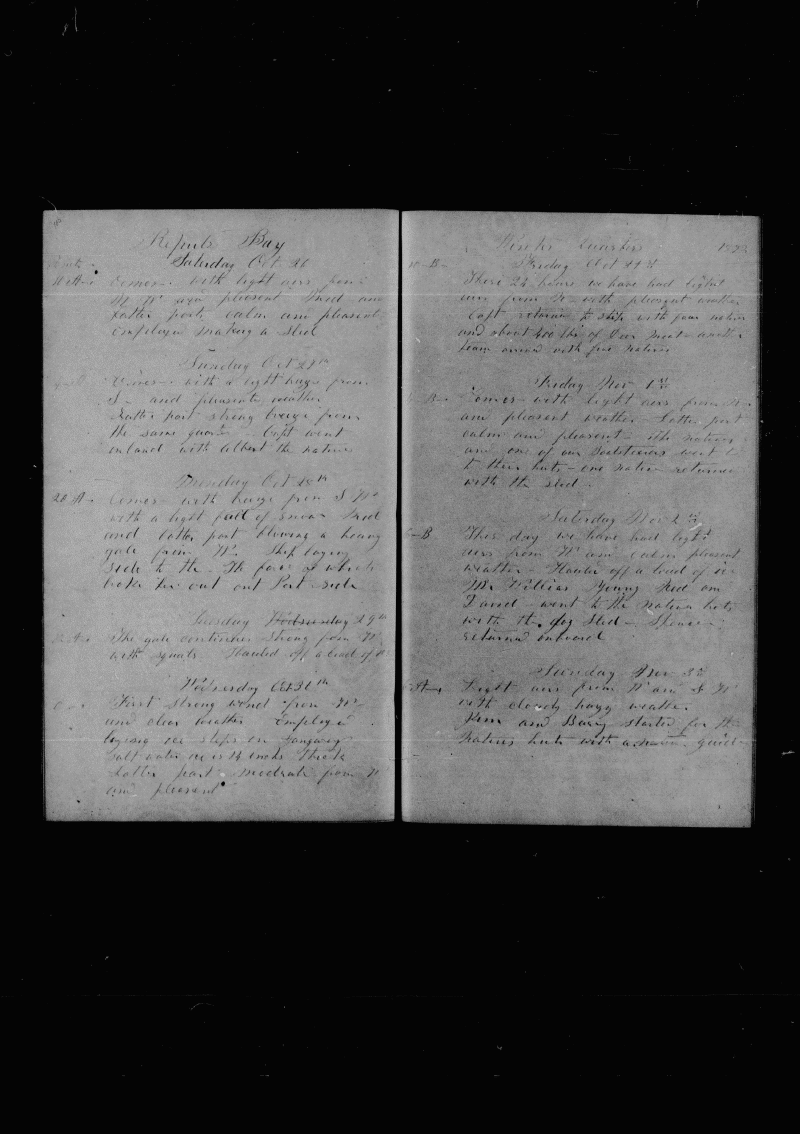 8
Repuls Bay
Saturday Oct 26
Comes with light airs from
N W and pleasent Mid and
Latter part, calm and pleasent
Employed making a sled
Sunday Oct 27th
Comes with a light breeze from
S and pleasent weather
Latter part strong breeze from
the same quarter Capt went
inland with Albert the native
Monday Oct 28th
Comes with breeze from S W
with a light fall of snow Mid
and latter part blowing a heavy
gale from W. Ship laying
side to the The force of which
broke her out out Port side
Tuesday Wednesday 29th
The gale continues strong from N
with squals Hauled off a load of
Wednesday Oct 30th
First strong wind from N
and clear weather Employed
laying ice steps on Gangway
salt water ice is 14 inches thick
Latter part moderate from N
and pleasent
Winter Quarters
B
These 24 hours we have had light
airs from N with pleasent weather
Capt returned to ship with four natives
and about 400 lbs of Deer meat another
team arrived with five natives
Friday Nov 1st
Comes with light airs from
and pleasent weather Latter part
calm and pleasent the natives
and one of our went
to their huts one native returned
with the sled
Saturday Nov 2nd
B
This day we have had light
airs from N and calm pleasent
weather Hauled off a load of ice
Mr William Young Med and
David went to the natives huts
with the dog sled Spencer
returned onboard
Sunday Nov 3rd
Light airs from N and S W
with cloudy hazy weather
and Barry started for the
natives huts with a native guide